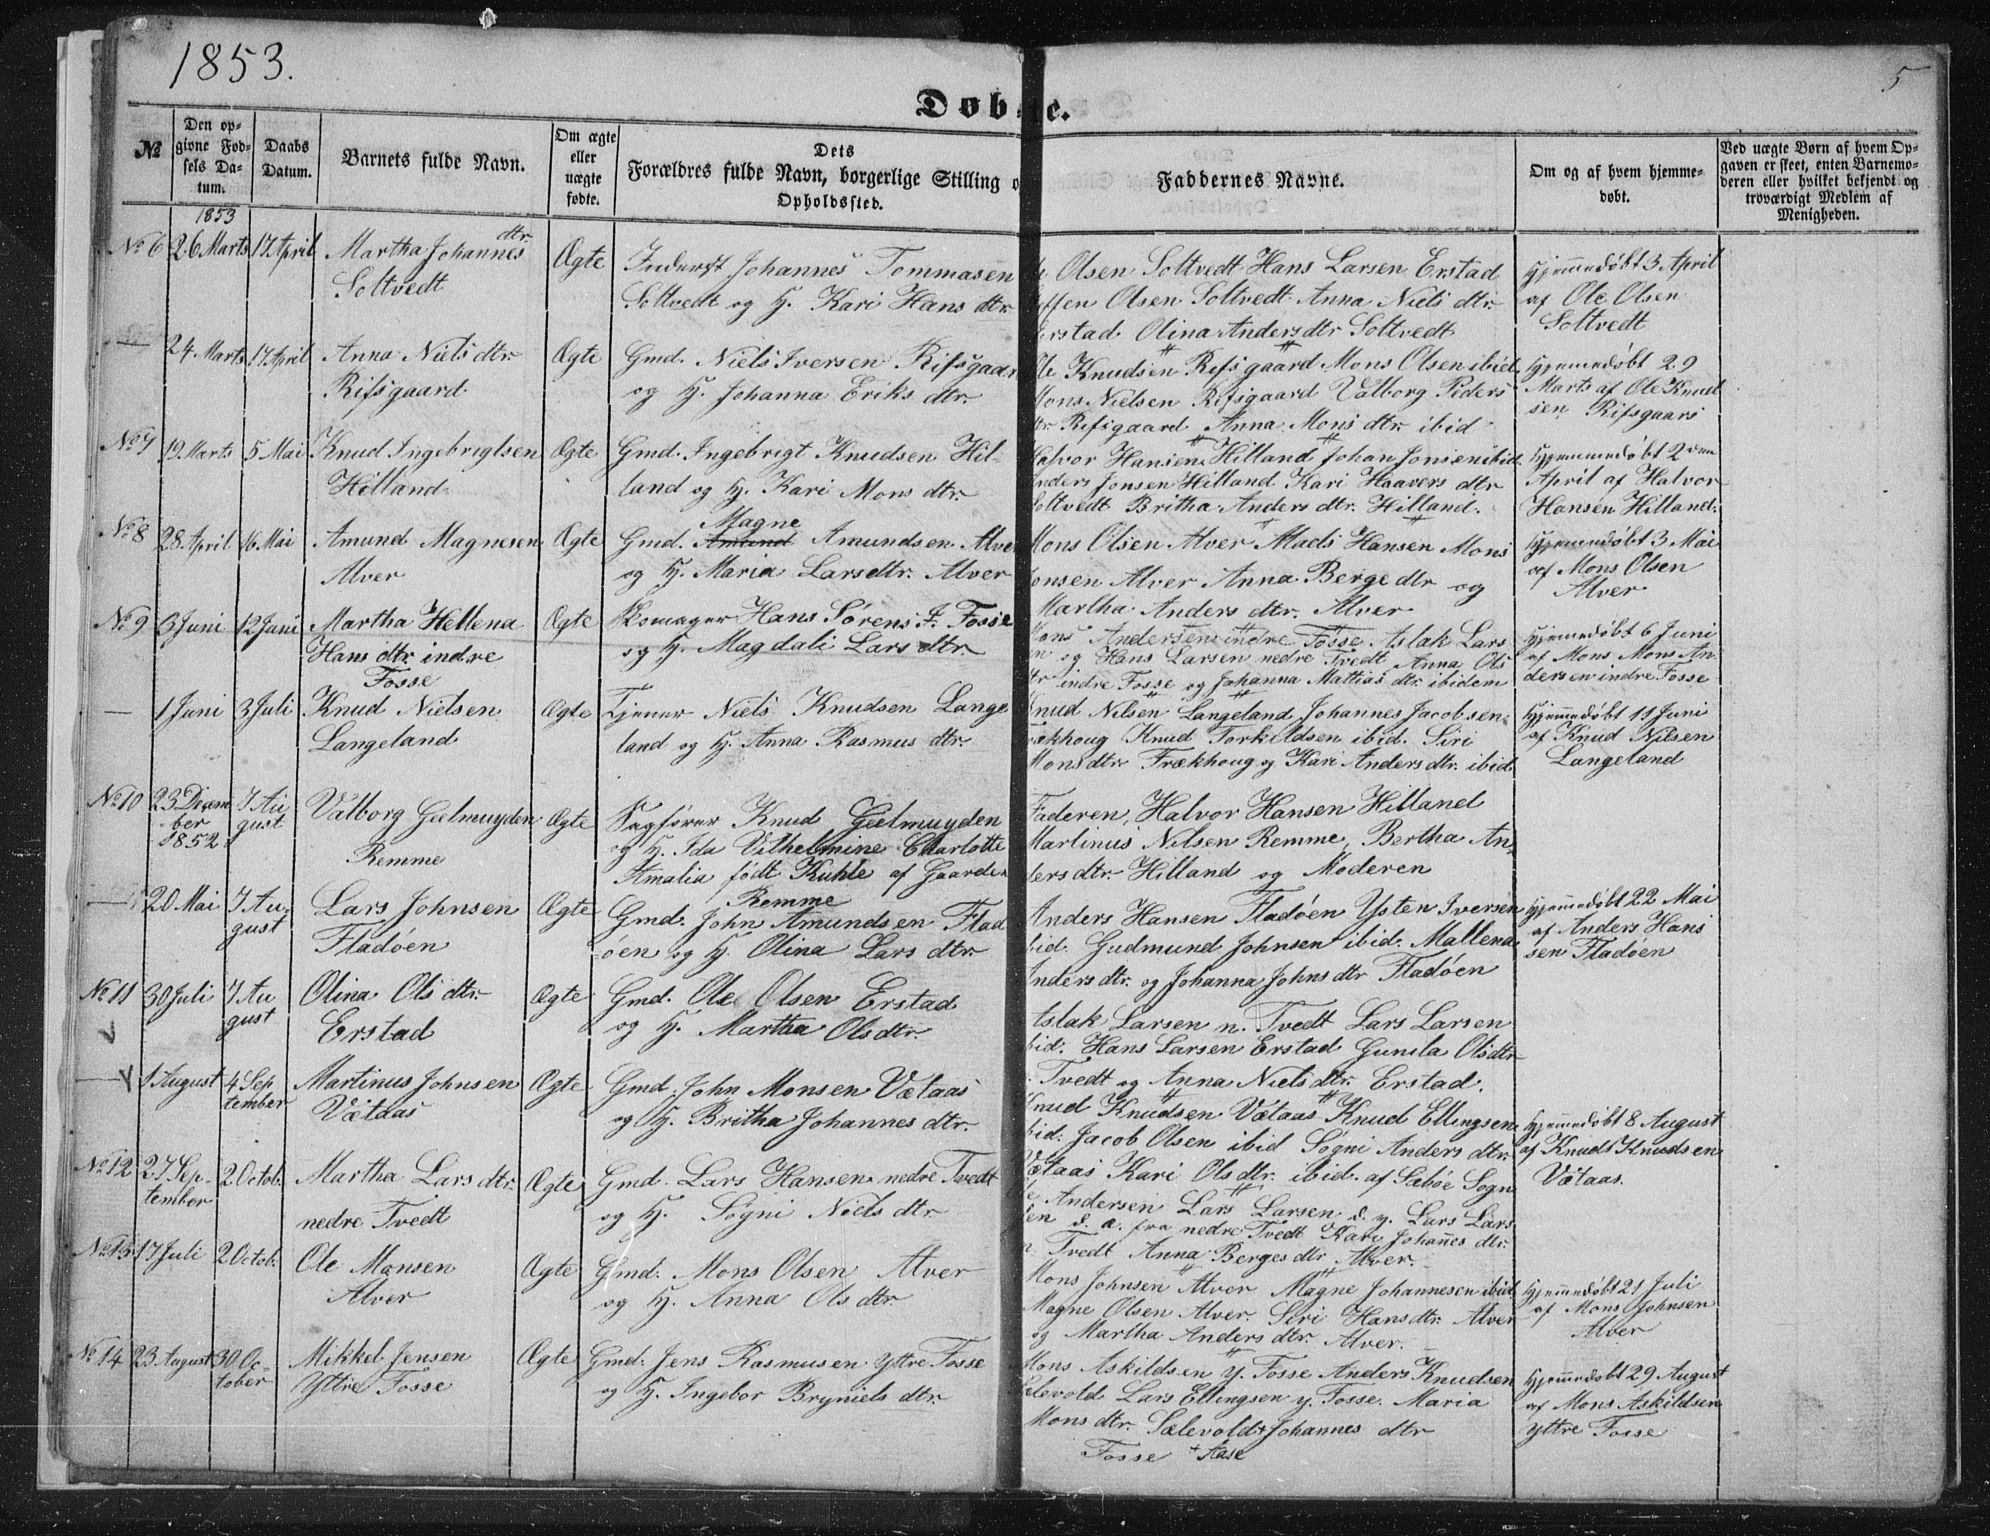 1853.
5
Døbte.
№
Den op-
givne Fød-
sels Da-
tum.
Daabs
Datum.
Barnets fulde Navn.
Om ægte
eller
uægte
fødte.
Dets
Forældres fulde Navn, borgerlige Stilling o
Opholdssted.
Faddernes Navne.
Om og af hvem hjemme-
døbt.
Ved uægte Børn af hvem Op-
gaven er skeet, enten Barnemo-
deren eller hvilket bekjendt og
troværdigt Medlem af
Menigheden.
1853
No 6 26 Marts 17 April Martha Johannes dtr.
Soltvedt
Ægte
Inderst Johannes Tommasen
Soltvedt og H. Kari Hans dtr
Olsen Soltvedt Hans Larsen Erstad
ffen Olsen Soltvedt Anna Niels dtr
Erstad Olina Anders dtr Soltvedt
Hjemmedøbt 3 April
af Ole Olsen
Soltvedt
— 24 Marts 17 April Anna Niels dtr.
Rifsgaard
Ægte
Gmd. Niels Iversen Rifsgaar
og H. Johanna Eriks dtr.
Ole Knudsen Rifsgaard Mons Olsen ibid
Mons Nielsen Rifsgaard Valborg Peders
dtr Rifsgaard Anna Mons dtr ibid
Hjemmedøbt 29
Marts af Ole Knud
sen Rifsgaard
No 7 19 Marts 5 Mai Knud Ingebrigtsen
Hilland
Ægte
Gmd. Ingebrigt Knudsen Hil-
land og H. Kari Mons dtr.
Halvor Hansen Hilland Johan Jonsen ibid.
Anders Jonsen Hilland Kari Haavers dtr
Soltvedt Britha Anders dtr. Hilland.
Hjemmedøbt 2den
April af Halvor
Hansen Hilland.
No 8 28 April 16 Mai Amund Magnesen
Alver
Ægte
Magne
Gmd. Amund Amundsen Alver
og H. Maria Lars dtr. Alver
Mons Olsen Alver Mads Hansen Mons
Monsen Alver Anna Berge dtr og
Martha Anders dtr. Alver
Hjemmedøbt 3 Mai
af Mons Olsen
Alver
No 9 3 Juni 12 Juni Martha Hellena
Hans dtr. indre
Fosse
Ægte
Skomager Hans Sørens. I. Fosse
og H. Magdali Lars dtr
Mons Andersen indre Fosse Aslak Lars
en og Hans Larsen nedre Tvedt Anna Ols
dtr indre Fosse og Johanna Mattias dtr. ibidem
Hjemmedøbt 6 Juni
af Mons Mons An-
dersen indre Fosse
— 1 Juni 3 Juli Knud Nielsen
Langeland
Ægte
Tjener Niels Knudsen Lange
land og H. Anna Rasmus dtr.
Knud Nilsen Langeland Johannes Jacobsen
Frækhoug Knud Torkildsen ibid. Siri
Mons dtr Frækhoug og Kari Anders dtr. ibid
Hjemmedøbt 11 Juni
af Knud Nilsen
Langeland
No 10 23 Decem
ber
1852.
7 Au
gust
Valborg Geelmuyden
Remme
Ægte
Sagfører Knud Geelmuyden
og H. Ida Vilhelmine Charlotte
Amalia født Kuhle af Gaarden
Remme
Faderen, Halvor Hansen Hilland
Martinus Nilsen Remme, Bertha An-
ders dtr. Hilland og Moderen
— 20 Mai 7 Au-
gust
Lars Johnsen
Fladøen
Ægte
Gmd. John Amundsen Flad
øen og H. Olina Lars dtr.
Anders Hansen Fladøen Ysten Iversen
ibid. Gudmund Johnsen ibid. Mallena
Anders dtr. og Johanna Johns dtr Fladøen
Hjemmedøbt 22 Mai
af Anders Hans
sen Fladøen
No 11 30 Juli 7 Au
gust
Olina Ols dtr.
Erstad
Ægte
Gmd. Ole Olsen Erstad
og H. Martha Ols dtr.
Aslak Larsen n. Tvedt Lars Larsen
ibid. Hans Larsen Erstad Gunla Ols dtr
n. Tvedt og Anna Niels dtr. Erstad.
— 1 August 4 Sep
tember
Martinus Johnsen
Vætaas
Ægte
Gmd. John Monsen Vætaas
og H. Britha Johannes dtr.
Knud Knudsen Vætaas Knud Ellingsen
ibid. Jacob Olsen ibid Sogni Anders dtr.
Vætaas Kari Ols dtr. ibid. af Sæbøe Sogn
Hjemmedøbt 8 August
af Knud Knudsen
Vætaas.
No 12 27 Sep-
tember
2 Octob. Martha Lars dtr.
nedre Tvedt
Ægte
Gmd. Lars Hansen nedre Tvedt
og H. Sogni Niels dtr
Ole Andersen Lars Larsen d. y. Lars Lars
sen d. a. fra nedre Tvedt Kari Johannes dtr.
n. Tvedt Anna Berges dtr Alver.
No 13 17 Juli 2 Octob. Ole Monsen
Alver
Ægte
Gmd. Mons Olsen Alver
og H. Anna Ols dtr.
Mons Johnsen Alver Magne Johannesen ibid
Magne Olsen Alver. Siri Hans dtr. Alver
og Martha Anders dtr. Alver.
Hjemmedøbt 21 Juli
af Mons Johnsen
Alver
No 14 23 August 30 Oc-
tober
Mikkel Jensen
Yttre Fosse
Ægte
Gmd. Jens Rasmusen Yttre Fosse
og H. Ingebor Bryniels dtr.
Mons Askildsen y. Fosse Anders Knudsen
Sælevold Lars Ellingsen y. Fosse. Maria
Mons dtr. Sælevold + Johannes dtr
Fosse + Aase
Hjemmedøbt 29 August
af Mons Askildsen
yttre Fosse